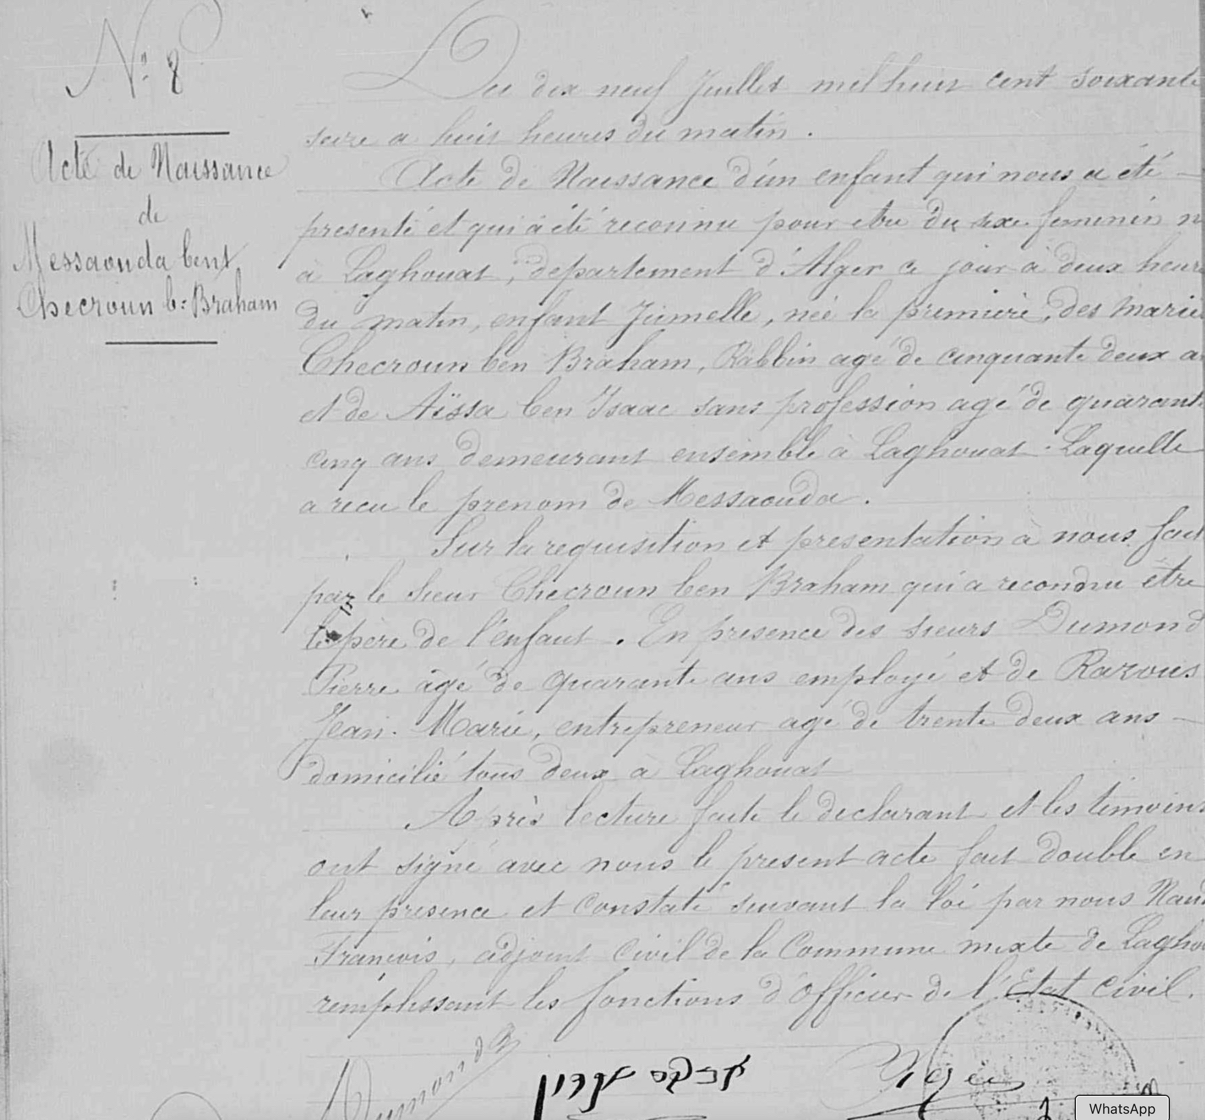 N° 8
Acte de Naissance
de
Messaouda bent
Checroun b: Braham
Du dix neuf Juillet mil huit cent soixante
seize a huit heures du matin.
Acte de Naissance d'un enfant qui nous a été
presenté et qui a été reconnu pour etre du sexe feminin n
à Laghouat, departement d'Alger ce jour à deux heure
du matin, enfant Jumelle, née la premiere, des marié
Checroun ben Braham, Rabbin agé de cinquante deux a
et de Aïssa ben Isaac sans profession agé de quarante
cinq ans demeurant ensemble à Laghouat. Laquelle
a recu le prenom de Messaouda.
Sur la requisition et presentation à nous fait
par le sieur Checroun ben Braham qui a reconnu être
le père de l'enfant. En presence des sieurs Dumond
Pierre âgé de quarante ans employé et de Razous
Jean-Marie, entrepreneur agé de trente deux ans
domicilié tous deux à Laghouat
Après lecture faite le declarant et les temoins
ont signé avec nous le present acte fait double en
leur presence et constaté suivant la loi par nous
Francois, adjoint civil de la Commune mixte de Lagho
remplissant les fonctions d'Officier de l'Etat Civil.
Dumond
WhatsApp